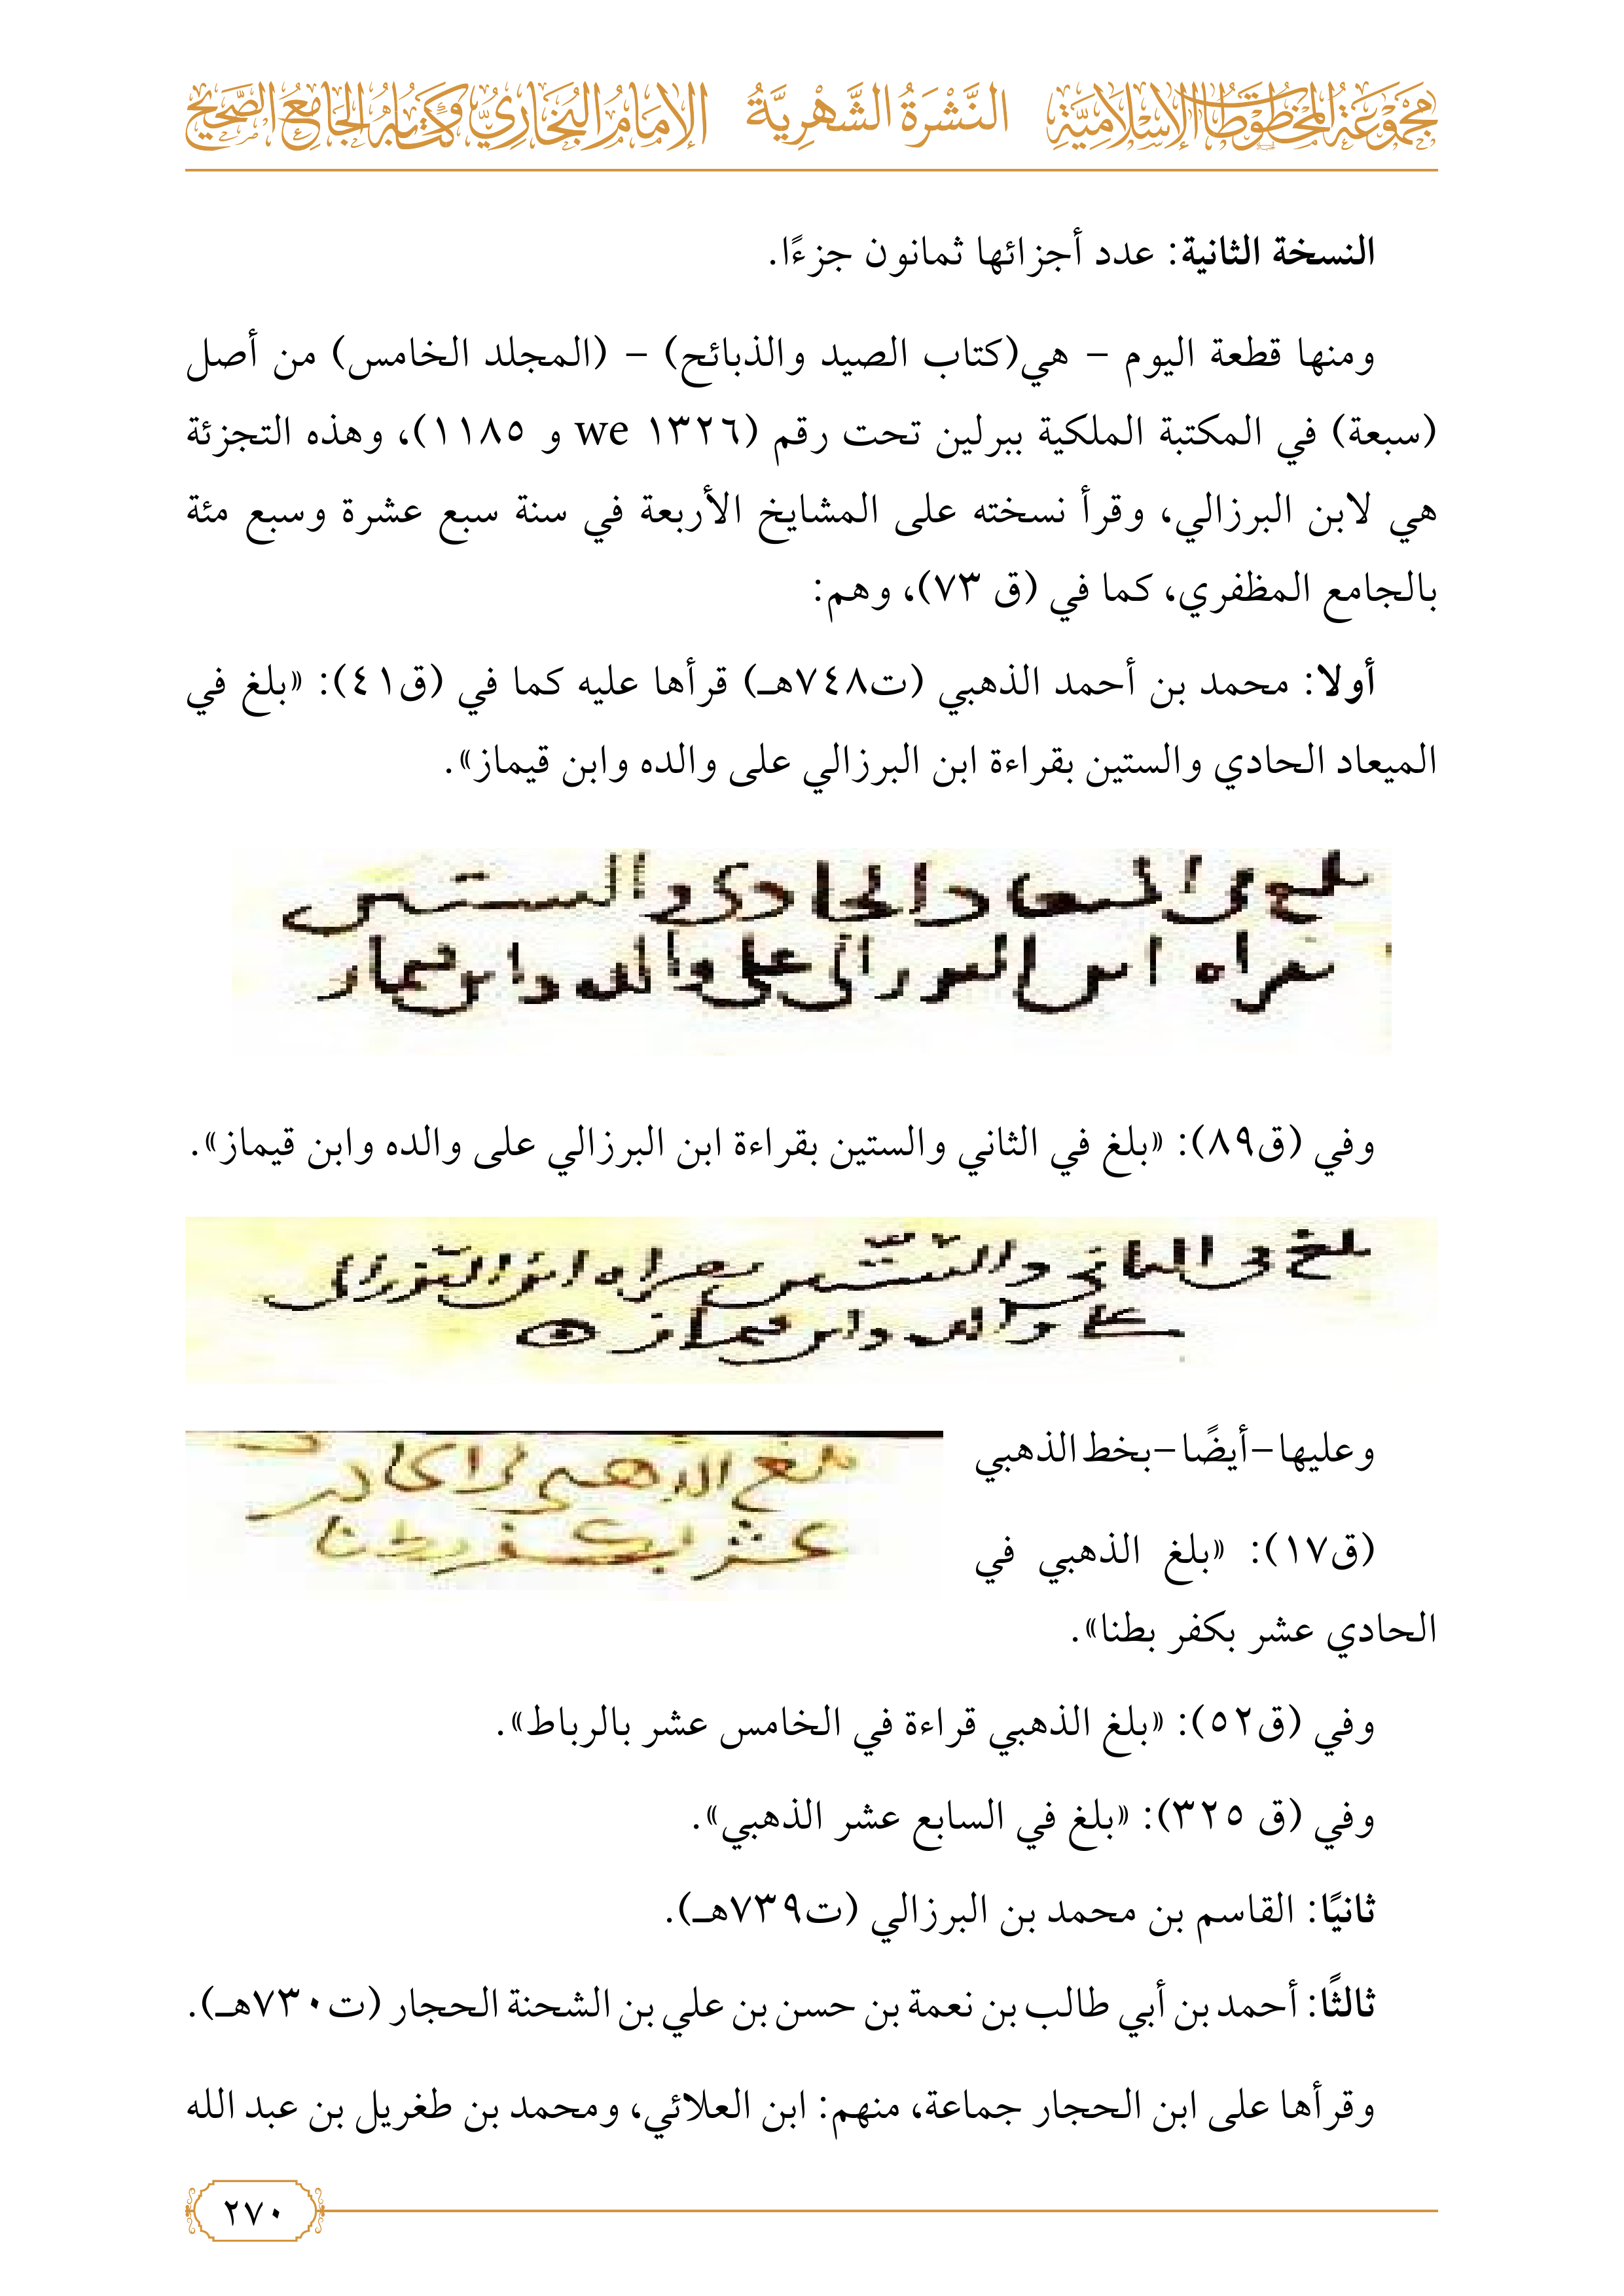 مَجْمُوعَةُ المَخْطُوطَاتِ الإِسْلَامِيَّةِ النَّشْرَةُ الشَّهْرِيَّةُ الإِمَامُ البُخَارِيُّ وَكِتَابُهُ الجَامِعُ الصَّحِيحُ
النسخة الثانية: عدد أجزائها ثمانون جزءًا.
ومنها قطعة اليوم – هي(كتاب الصيد والذبائح) – (المجلد الخامس) من أصل
(سبعة) في المكتبة الملكية ببرلين تحت رقم (١٣٢٦ we و ١١٨٥)، وهذه التجزئة
هي لابن البرزالي، وقرأ نسخته على المشايخ الأربعة في سنة سبع عشرة وسبع مئة
بالجامع المظفري، كما في (ق ٧٣)، وهم:
أولا: محمد بن أحمد الذهبي (ت٧٤٨هـ) قرأها عليه كما في (ق٤١): «بلغ في
الميعاد الحادي والستين بقراءة ابن البرزالي على والده وابن قيماز».
بلغ في الميعاد الحادي والستين
بقراه ابن البرزالي على والده وابن قيماز
وفي (ق٨٩): «بلغ في الثاني والستين بقراءة ابن البرزالي على والده وابن قيماز».
بلغ في الثاني والستين بقراه ابن البرزالي
على والده وابن قيماز
وعليها–أيضًا–بخط الذهبي
(ق١٧): «بلغ الذهبي في
الحادي عشر بكفر بطنا».
بلغ الذهبي في الحادي
عشر بكفر بطنا
وفي (ق٥٢): «بلغ الذهبي قراءة في الخامس عشر بالرباط».
وفي (ق ٣٢٥): «بلغ في السابع عشر الذهبي».
ثانيًا: القاسم بن محمد بن البرزالي (ت٧٣٩هـ).
ثالثًا: أحمد بن أبي طالب بن نعمة بن حسن بن علي بن الشحنة الحجار (ت٧٣٠هـ).
وقرأها على ابن الحجار جماعة، منهم: ابن العلائي، ومحمد بن طغريل بن عبد الله
٢٧٠